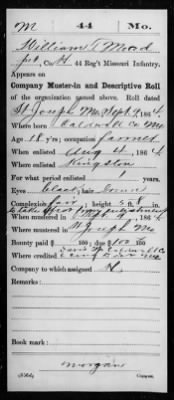 M 44 Mo.
William T Mead
Pvt, Co. H, 44 Reg't Missouri Infantry.
Appears on
Company Muster-in and Descriptive Roll
of the organization named above. Roll dated
St Joseph Mo, Sept 9, 1864
Where born Caldwell Co Mo
Age 18 y'rs; occupation farmer
When enlisted Aug 4, 1864
Where enlisted Kingston
For what period enlisted 1 years
Eyes black; hair brown
Complexion fair; height 5 ft. 8 in.
to take effect from enlistment
When mustered in Sept 9, 1864
Where mustered in St Joseph Mo
Bounty paid $ 100; due $ 100
Where credited
Company to which assigned H
Remarks:
Book mark:
Morgan
Copyist.